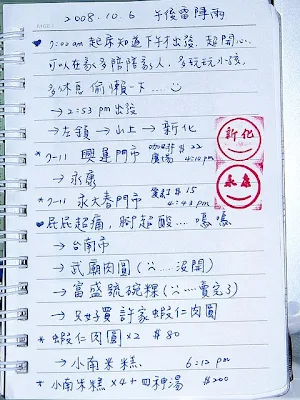 2008.10.6 午後雷陣雨
♥ 7:00am 起床知道下午才出發,超開心,
可以在家多陪陪家人,多玩玩小孩,
多休息偷懶一下...
→ 2:53 pm 出發
→ 左鎮 → 山上 → 新化
* 7-11 興運門市 咖啡 $22
廣場 4:10pm
新化
→ 永康
* 7-11 永大春門市 $15
4:43 pm
永康
♥ 屁屁超痛,腳超酸... 嗚嗚
→ 台南市
→ 武廟肉圓 (ㄍ....沒開)
→ 富盛號碗粿 (ㄍ....賣完了)
→ 只好買許家蝦仁肉圓
* 蝦仁肉圓 x2 $80
→ 小南米糕 6:12 pm
* 小南米糕 x4 + 四神湯 $200